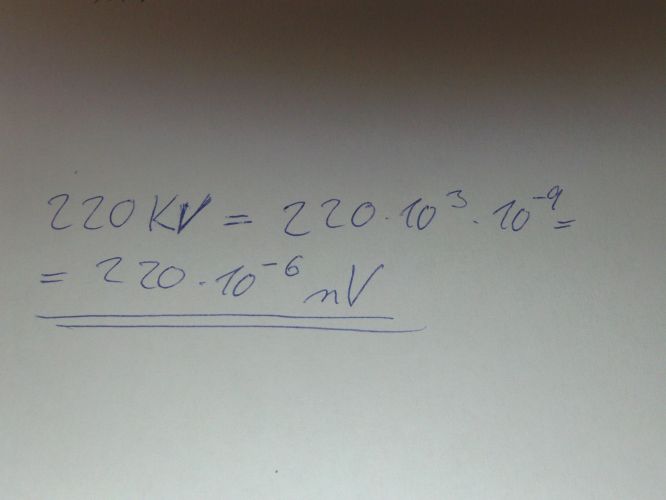 220 KV = 220 · 10³ · 10⁻⁹ =
= 220 · 10⁻⁶ nV